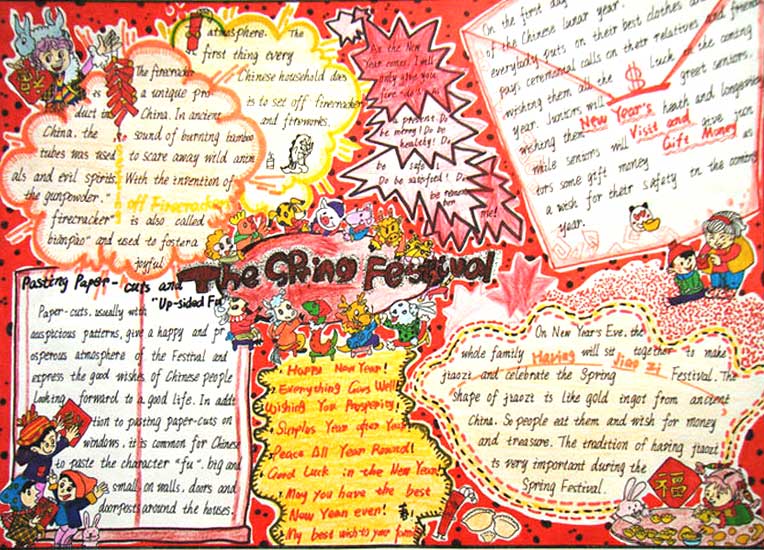 atmosphere. The
first thing every
Chinese household does
is to set off firecracker
and fireworks.
The firecracker
is a unique pro
duct in China. In ancient
China. the sound of burning bamboo
tubes was used to scare away wild anim
als and evil spirits. With the invention of
the gunpowder."
off Firecrackers
firecracker" is also called
bianpao" and used to foster a
joyful
As the New
Year comes. I will
only give you
present. Do
be merry! Do be
healthy! Do
be safe!
Do be satisfied! Do
be remember
me!
On the first day
of the Chinese lunar year.
everybody puts on their best clothes and
pays ceremonial calls on their relatives and friends
wishing them all the luck in the coming
year. Juniors will greet seniors.
wishing them heath and longevity
New Year's
Visit and
Gift Money
while seniors will give jun
iors some gift money as
a wish for their safety in the coming
year.
The SPring Festival
Pasting Paper-cuts and
"Up-sided Fu"
Paper-cuts. usually with
auspicious patterns, give a happy and pr
osperous atmosphere of the Festival and
express the good wishes of Chinese people
Looking forward to a good life. In addi
tion to pasting paper-cuts on
windows. it is common for Chinese
to paste the character "fu". big and
small on walls. doors and
doorposts around the houses.
Happy New Year!
Everything Goes Well!
Wishing You Prosperity!
Surplus Year after Year
Peace All Year Round!
Good Luck in the New Year!
May you have the best
New Year ever!
My best wish to your family
On New Year's Eve, the
whole family will sit together to make
Having Jiao zi
jiaozi and celebrate the Spring Festival. The
shape of jiaozi is like gold ingot from ancient
China. So people eat them and wish for money
and treasure. The tradition of having jiaozi
is very important during the
Spring Festival.
福